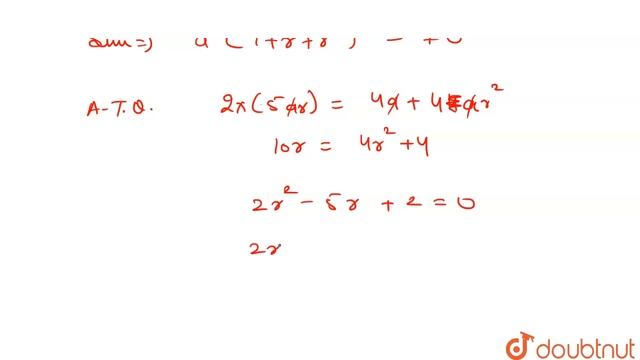 A-T.Q. 2x(5ar) = 4a + 4ar²
10r = 4r² + 4
2r² - 5r + 2 = 0
2r
doubtnut